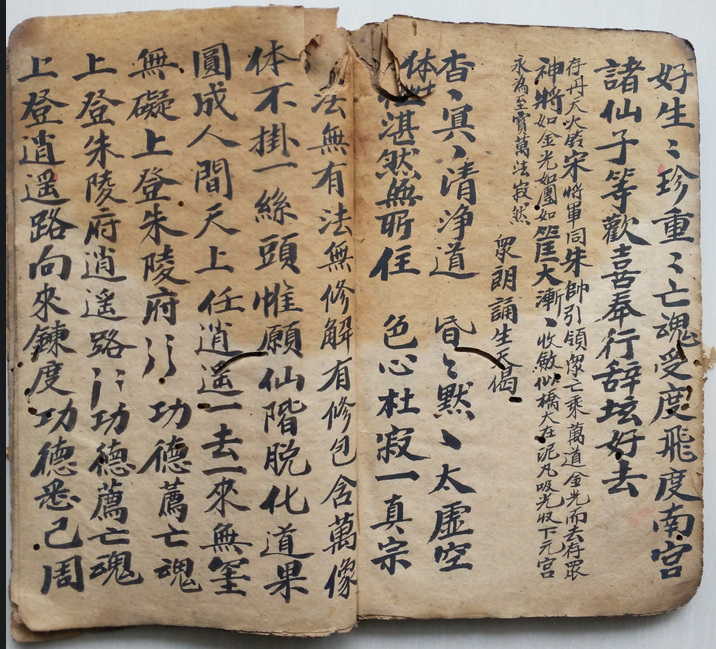 好生〻珍重〻亡魂受度飛度南宮
諸仙子等歡喜奉行辞坛好去
存丹天火鈴宋將軍同朱帥引領眾亡乘萬道金光而去存眾
神將如金光如團如筐大漸〻收敛似橘大在泥丸吸光收下元宮
永為至寳萬法寂然
眾朗誦生天偈
杳〻冥〻清淨道 昏〻默〻太虛空
体性湛然無所住 色心杜寂一真宗
法無有法無修解有修包含萬像
体不掛一絲頭惟願仙階脫化道果
圓成人間天上任逍遥一去一來無窒
無礙上登朱陵府〻〻功德薦亡魂
上登朱陵府逍遥路〻〻功德薦亡魂
上登逍遥路向來鍊度功德悉已周